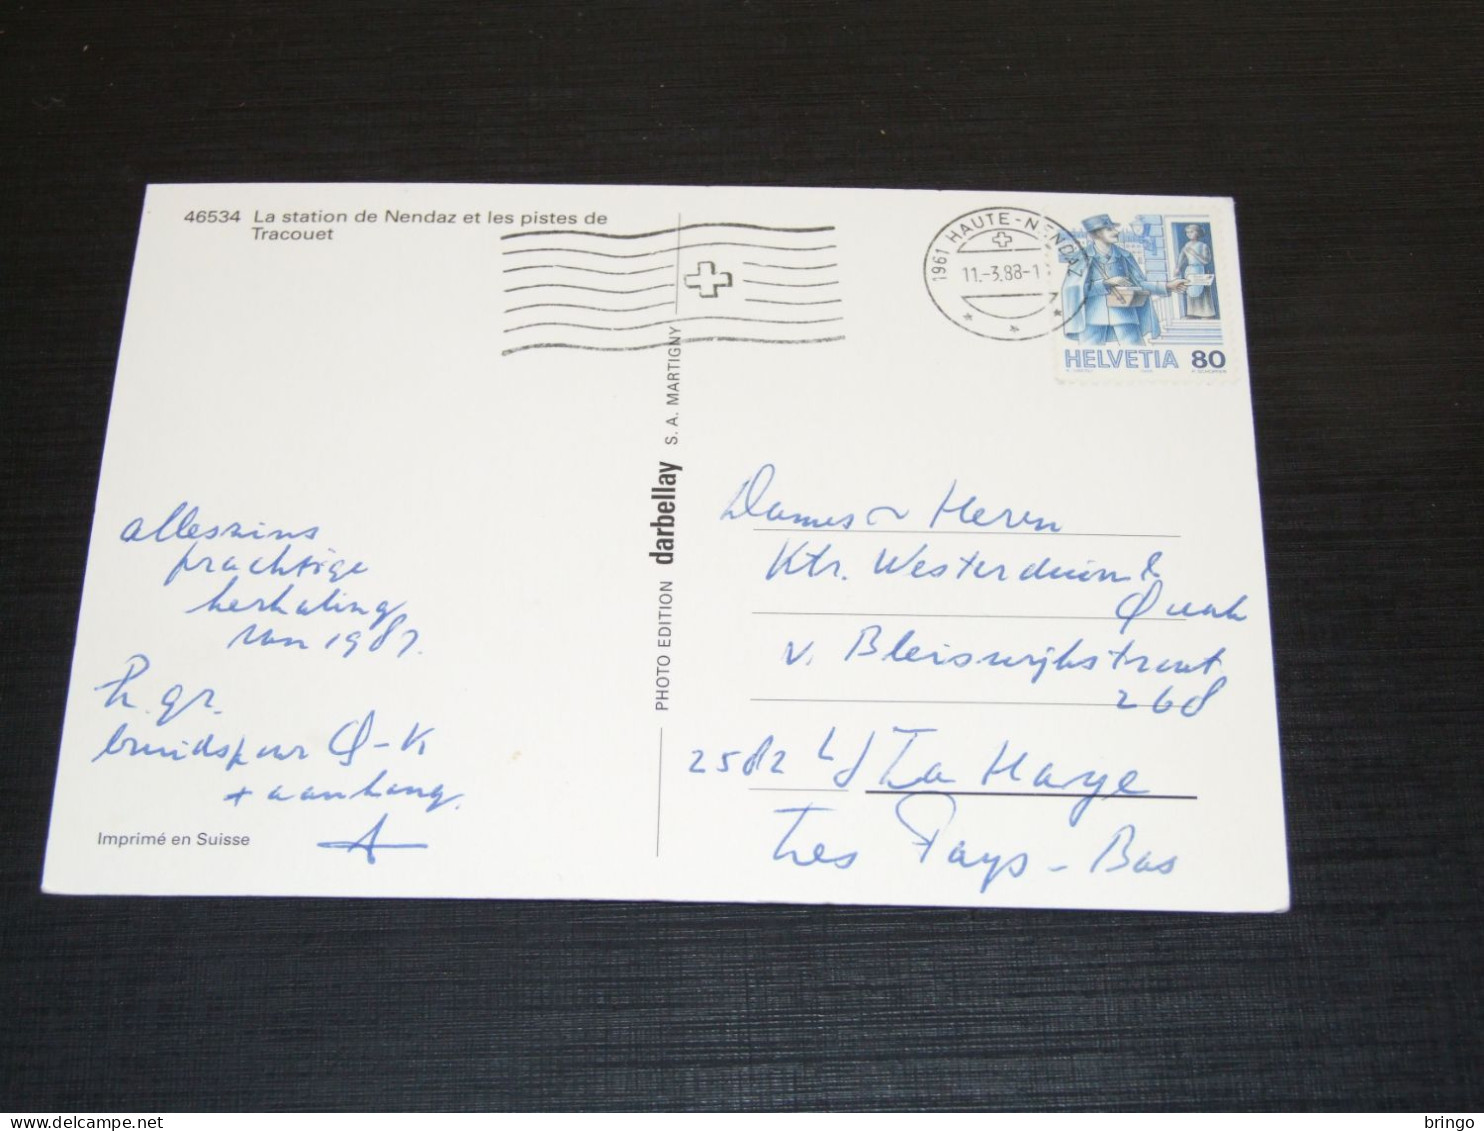 46534 La station de Nendaz et les pistes de
Tracouet
1961 HAUTE-NENDAZ
11.-3.88-1
HELVETIA 80
PHOTO EDITION darbellay S. A. MARTIGNY
alleszins
prachtige
herhaling
van 1987.
h. gr.
+ aanhang.
A
Imprimé en Suisse
Dames & Heren
Ktr. Westerduin &
Quak
v. Bleiswijkstraat
268
2582 Ld La Haye
Les Pays-Bas
bringo